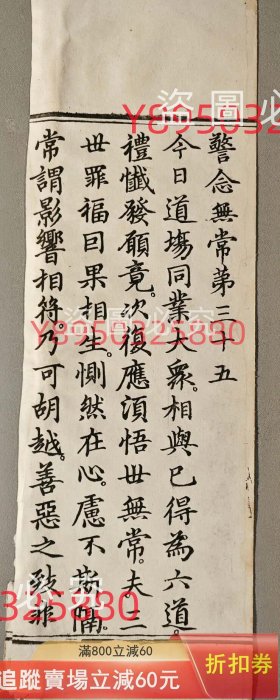 警念無常弟三十五
今日道塲同業大衆。相與已得為六道。
禮懺發願竟。次復應須悟世無常。夫三
世罪福囙果相生。惻然在心。慮不斯隔。
常謂影響相符。乃可胡越。善惡之致非
盜圖必
Y8950325880
滿800立減60
追蹤賣場立減60元
折扣券